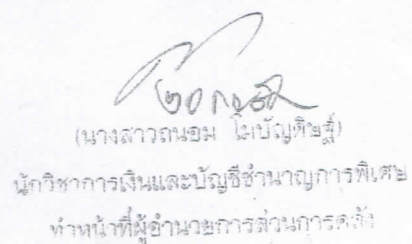 (นางสาวถนอม โมบัณฑิษฐ์)
นักวิชาการเงินและบัญชีชำนาญการพิเศษ
ทำหน้าที่ผู้อำนวยการส่วนการคลัง